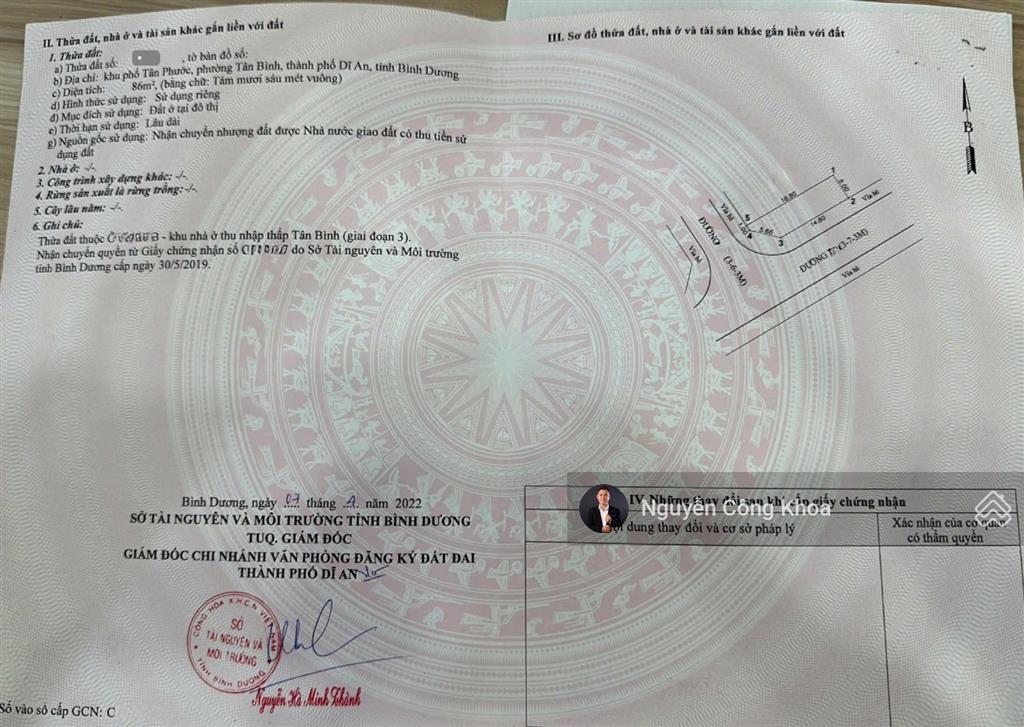 II. Thửa đất, nhà ở và tài sản khác gắn liền với đất
1. Thửa đất:
a) Thửa đất số: , tờ bản đồ số:
b) Địa chỉ: khu phố Tân Phước, phường Tân Bình, thành phố Dĩ An, tỉnh Bình Dương
c) Diện tích: 86m², (bằng chữ: Tám mươi sáu mét vuông)
d) Hình thức sử dụng: Sử dụng riêng
đ) Mục đích sử dụng: Đất ở tại đô thị
e) Thời hạn sử dụng: Lâu dài
g) Nguồn gốc sử dụng: Nhận chuyển nhượng đất được Nhà nước giao đất có thu tiền sử
dụng đất
2. Nhà ở: -/-.
3. Công trình xây dựng khác: -/-.
4. Rừng sản xuất là rừng trồng: -/-.
5. Cây lâu năm: -/-.
6. Ghi chú:
Thửa đất thuộc - khu nhà ở thu nhập thấp Tân Bình (giai đoạn 3).
Nhận chuyển quyền từ Giấy chứng nhận số do Sở Tài nguyên và Môi trường
tỉnh Bình Dương cấp ngày 30/5/2019.
III. Sơ đồ thửa đất, nhà ở và tài sản khác gắn liền với đất
B
1
5.00
2
Vỉa hè
16.80
14.80
Vỉa hè
5
1.00
4
5.66
3
ĐƯỜNG
(3-6-3M)
Vỉa hè
ĐƯỜNG (3-7-3M)
Vỉa hè
Bình Dương, ngày 07 tháng năm 2022
SỞ TÀI NGUYÊN VÀ MÔI TRƯỜNG TỈNH BÌNH DƯƠNG
TUQ. GIÁM ĐỐC
GIÁM ĐỐC CHI NHÁNH VĂN PHÒNG ĐĂNG KÝ ĐẤT ĐAI
THÀNH PHỐ DĨ AN
CỘNG HÒA X.H.C.N VIỆT NAM
SỞ
TÀI NGUYÊN VÀ
MÔI TRƯỜNG
TỈNH BÌNH DƯƠNG
Nguyễn Hà Minh Thành
Số vào sổ cấp GCN: C
IV. Những thay đổi sau khi cấp giấy chứng nhận
Nguyễn Công Khoa
dung thay đổi và cơ sở pháp lý
Xác nhận của cơ quan
có thẩm quyền